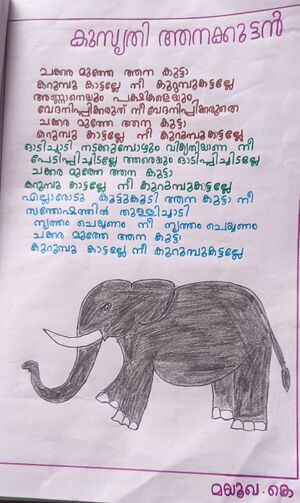 കുസൃതി ആനക്കുട്ടൻ
ചക്കര മുത്തേ ആന കുട്ടാ
കുറുമ്പു കാട്ടല്ലേ നീ കുറുമ്പുകാട്ടല്ലേ
അണ്ണാനെയും പക്ഷികളെയും
വേദനിപ്പിക്കരുത് നീ വേദനിപ്പിക്കരുതെ
ചക്കര മുത്തേ ആന കുട്ടാ
കുറുമ്പു കാട്ടല്ലേ നീ കുറുമ്പുകാട്ടല്ലേ
ഓടിച്ചാടി നടക്കുമ്പോഴും വികൃതിയാണ നീ
പേടിപ്പിച്ചിടല്ലേ ഞങ്ങളെ ഓടിപ്പിച്ചിടല്ലേ
ചക്കര മുത്തേ ആന കുട്ടാ
കുറുമ്പു കാട്ടല്ലേ നീ കുറുമ്പുകാട്ടല്ലേ
എല്ലാരോടും കൂട്ടുകൂടി ആന കുട്ടാ നീ
സന്തോഷത്തിൽ തുള്ളിച്ചാടി
നൃത്തം ചെയ്യണം നീ നൃത്തം ചെയ്യണം
ചക്കര മുത്തേ ആന കുട്ടാ
കുറുമ്പു കാട്ടല്ലേ നീ കുറുമ്പുകാട്ടല്ലേ
മയൂഖ.കെ